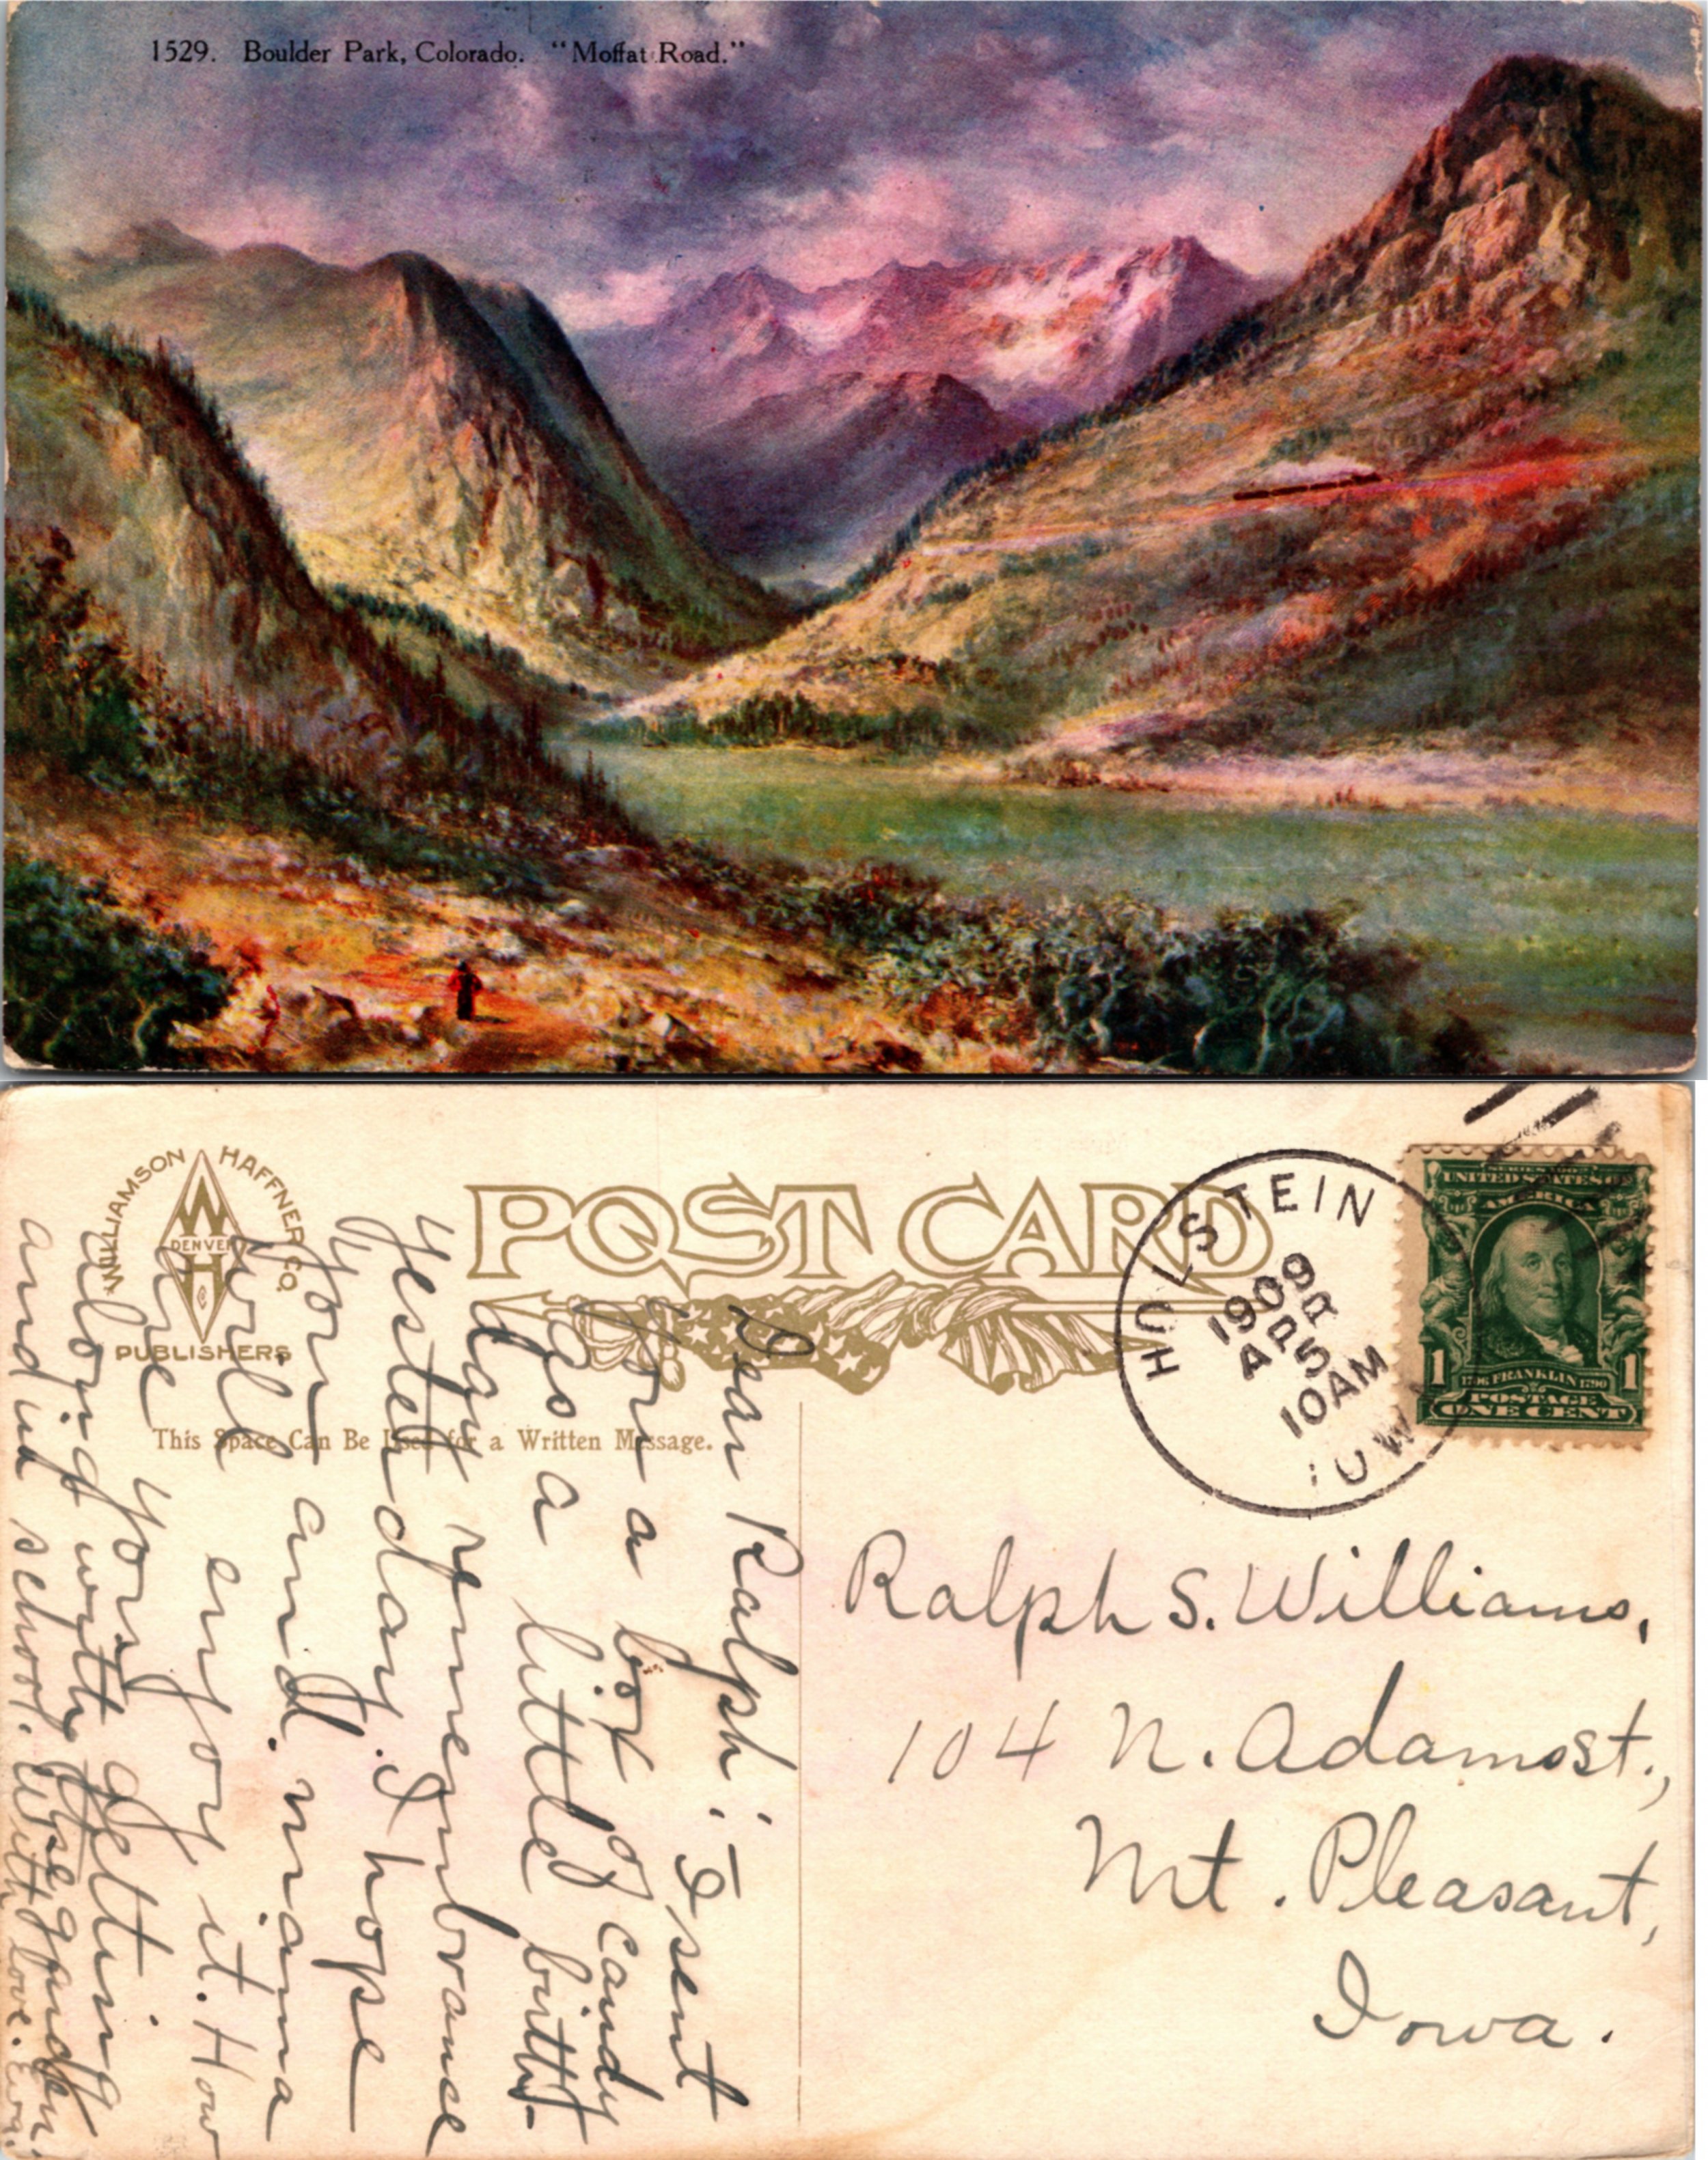 1529. Boulder Park, Colorado. "Moffat Road."
WILLIAMSON HAFFNER CO.
W
DENVER
H
PUBLISHERS
POST CARD
This Space Can Be Used for a Written Message.
HOLSTEIN
1909
APR
5
10AM
IOW
SERIES 1902
UNITED STATES OF
AMERICA
1 1706 FRANKLIN 1790 1
POSTAGE
ONE CENT
Dear Ralph: I sent
for a box of candy
as a little birth-
day remembrance
yesterday. I hope
you and mama
will enjoy it. How
are you getting
along with the garden
and in school. With love.
Ralph S. Williams,
104 N. Adams st.,
Mt. Pleasant,
Iowa.